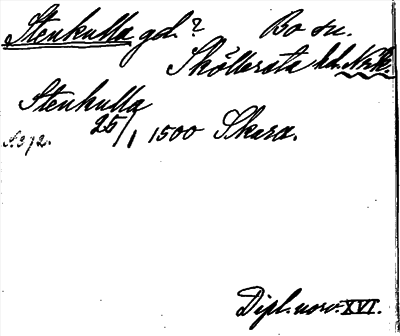 Stenkulla gd.? Bo sn.
Skölersta hd. Nrk.
Stenkulla
25/1 1500 Skara.
s. 372.
Dipl. norv. XVI.